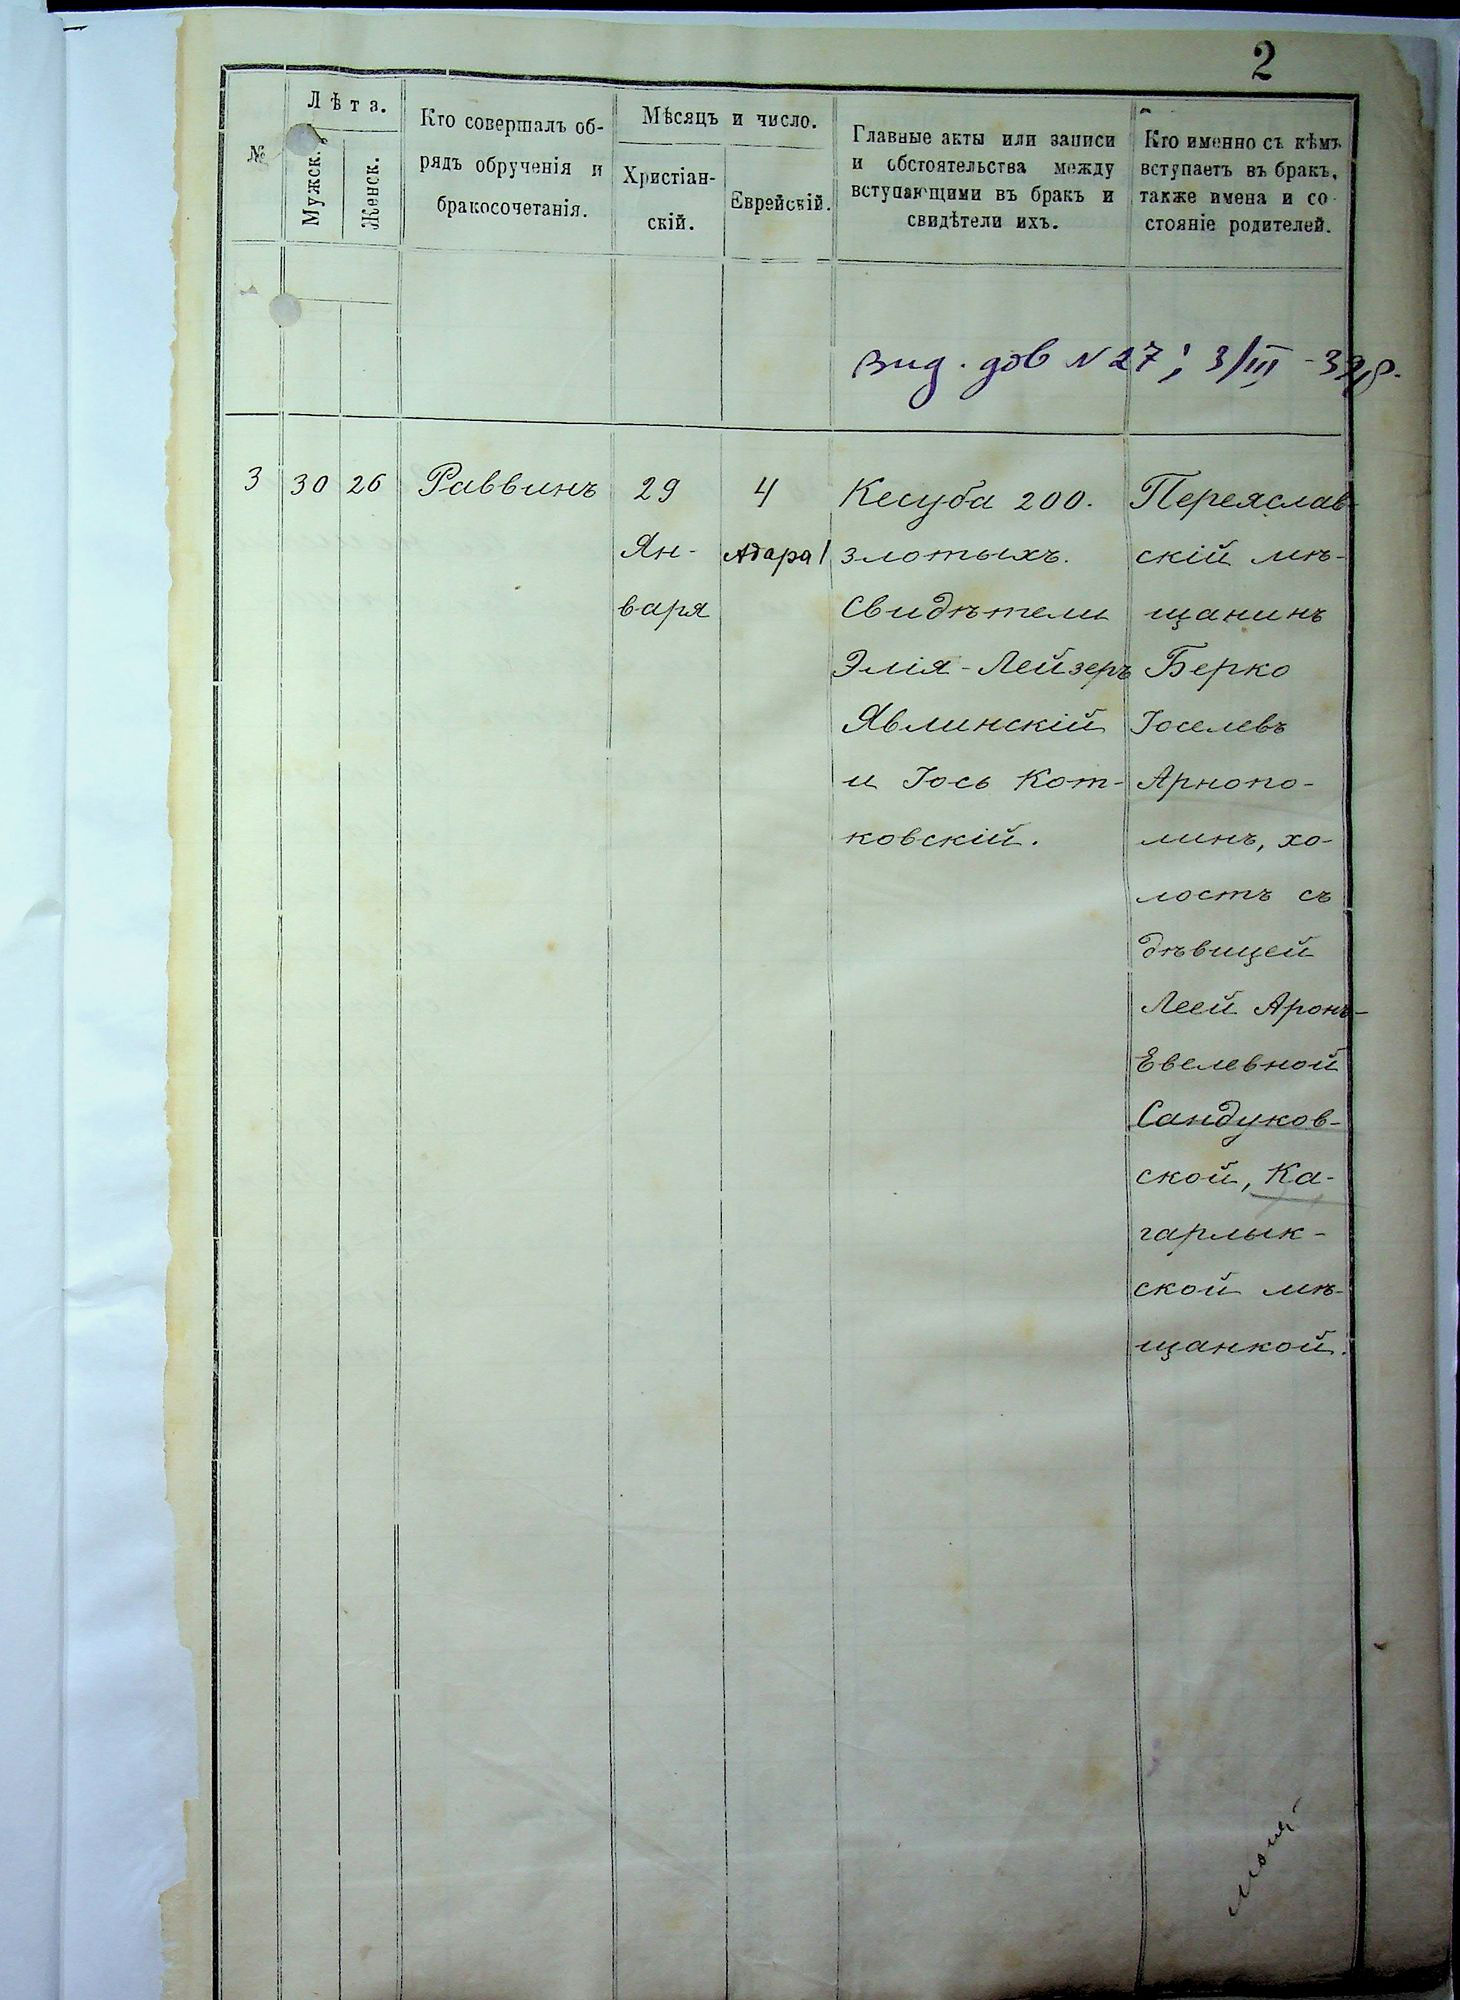 2
№
Лѣта.
Мужск.
Женск.
Кто совершалъ об-
рядъ обрученія и
бракосочетанія.
Мѣсяцъ и число.
Христіан-
скій.
Еврейскій.
Главные акты или записи
и обстоятельства между
вступающими въ бракъ и
свидѣтели ихъ.
Кто именно съ кѣмъ
вступаетъ въ бракъ,
также имена и со-
стояніе родителей.
Вид. дов N 27; 3/III - 39 р.
3
30
26
Раввинъ
29
Ян-
варя
4
Адара 1
Кесуба 200.
злотыхъ.
Свидѣтели
Элія-Лейзеръ
Явлинскій
и Іось Кот-
ковскій.
Переяслав-
скій мѣ-
щанинъ
Берко
Іоселевъ
Арнопо-
линъ, хо-
лостъ съ
дѣвицей
Леей Аронъ-
Евелевной
Сандуков-
ской, Ка-
гарлык-
ской мѣ-
щанкой.